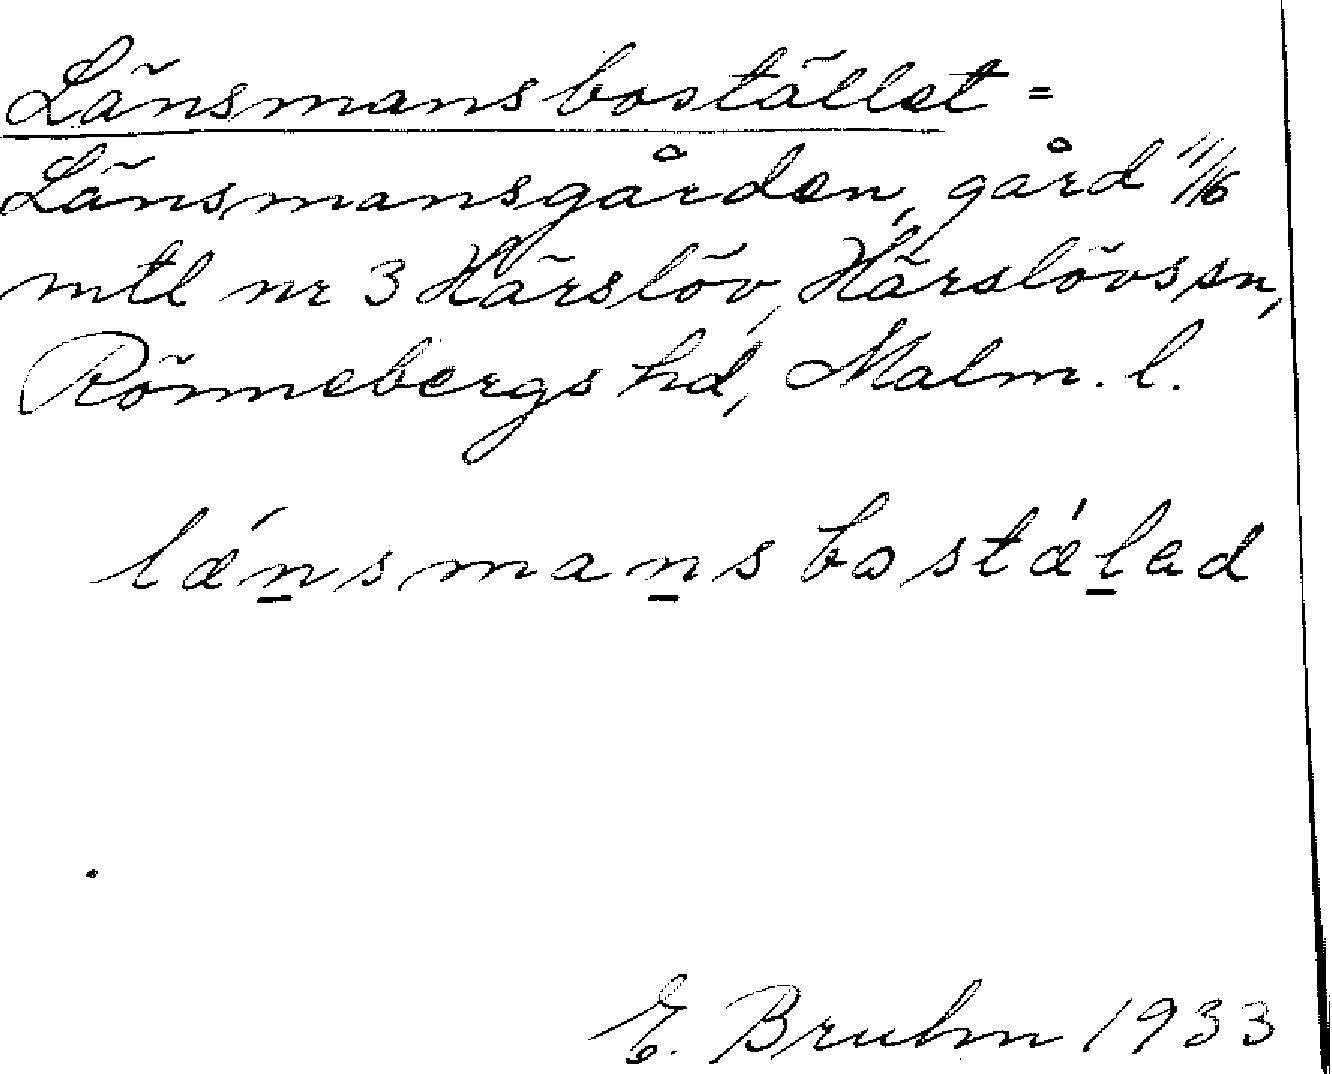 Länsmansbostället =
Länsmansgården, gård 11/16
mtl nr 3 Härslöv, Härslövs sn,
Rönnebergs hd, Malm. l.
lǽn̲sman̲sbostǽl̲ad
E. Bruhn 1933